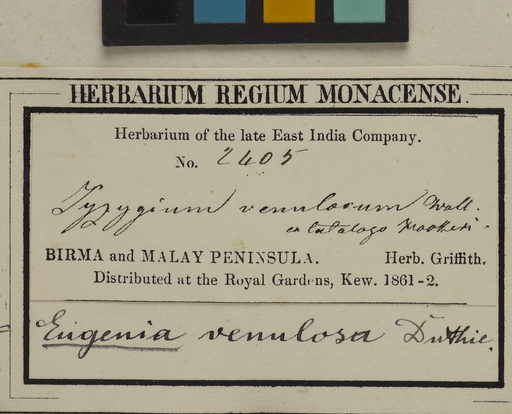 HERBARIUM REGIUM MONACENSE.
Herbarium of the late East India Company.
No. 2405
Syzygium venulosum Wall.
ex catalogo Hookeri.
BIRMA and MALAY PENINSULA. Herb. Griffith.
Distributed at the Royal Gardens, Kew. 1861-2.
Eugenia venulosa Duthie.